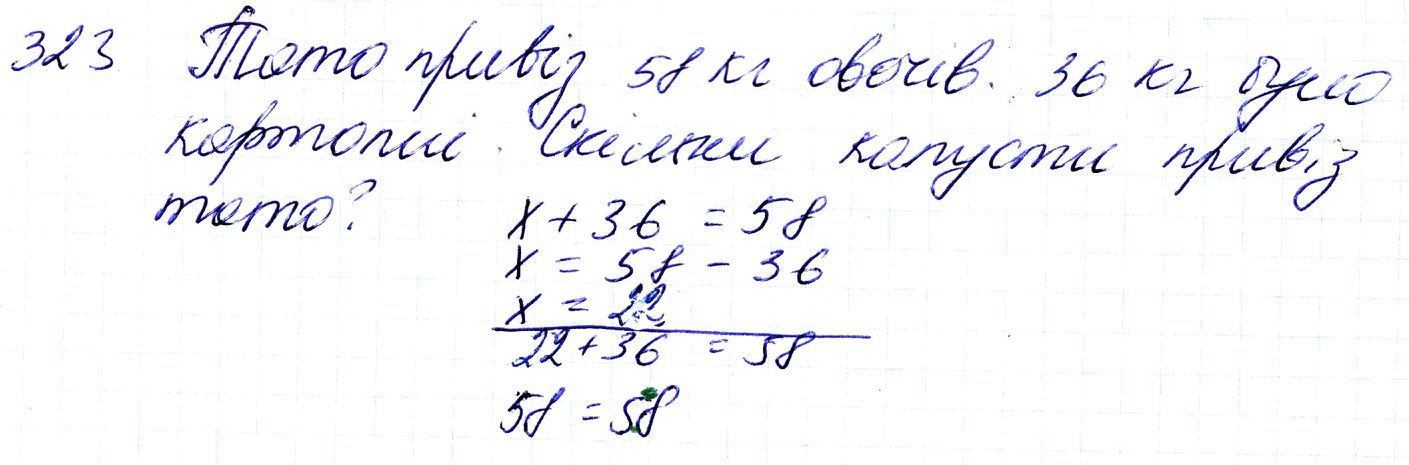 323 Тато привіз 58 кг овочів. 36 кг було
картоплі. Скільки капусти привіз
тато?
x + 36 = 58
x = 58 - 36
x = 22
22 + 36 = 58
58 = 58